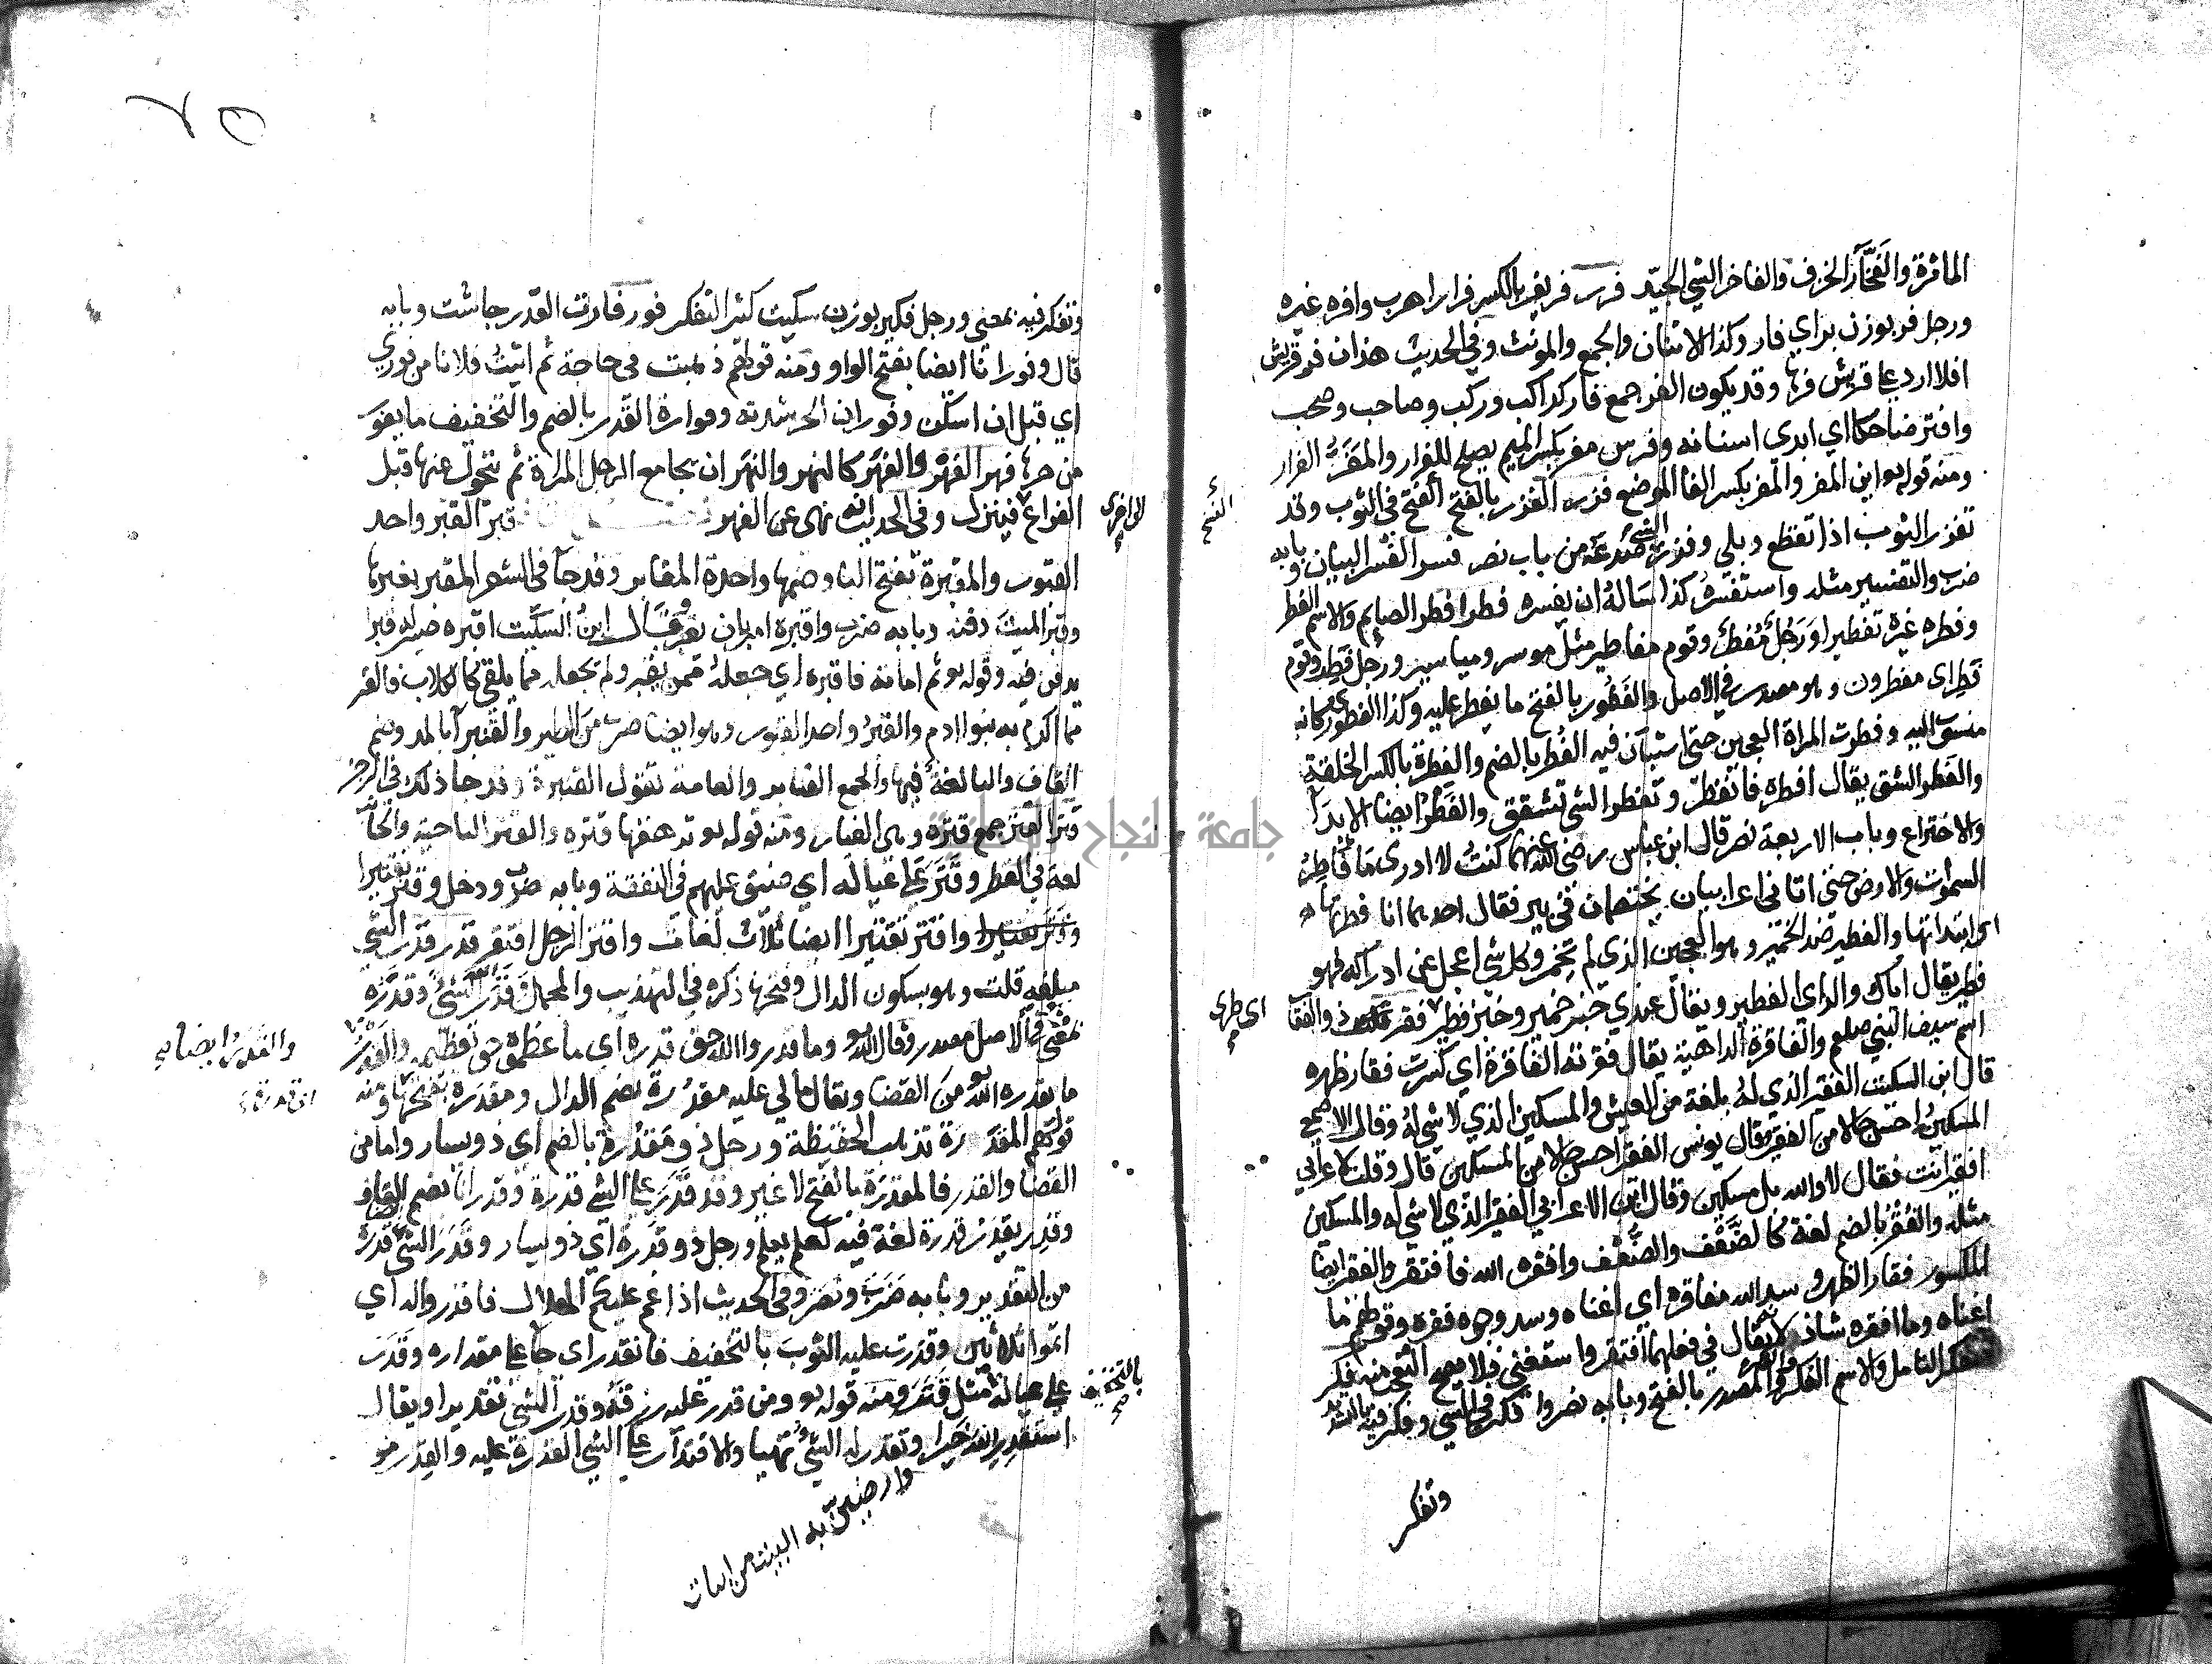 الماثرة والفَخّار الخزف والفاخر الشي الجيّد فرر فر يفر بالكسر فرارا هرب وافره غيره
ورجل فر بوزن براي فار وكذا الاثنان والجمع والمونث وفي الحديث هذان فر قريش
افلا ارد على قريش فرها وقد يكون الفر جمع فار كراكب وركب وصاحب وصحب
وافتر ضاحكا اي ابدى اسنانه وفرس مفر بكسر الميم يصلح للفرار والمَفَرّ الفرار
ومنه قوله اين المفر والمفر بكسر الفا الموضع فزر الفزر بالفتح الفتح في الثوب وقد
الفسخ
تفزر الثوب اذا تقطع وبلي وفزرت الشي صدعته من باب نصر فسر الفسر البيان وبابه
ضرب والتفسير مثله واستفسره كذا ساله ان يفسره فطر افطر الصايم والاسم الفطر
وفطره غيره تفطيرا ورجل مُفطر وقوم مفاطير مثل موسر ومياسير ورجل فِطر وقوم
فِطر اي مفطرون وهو مصدر في الاصل والفَطُور بالفتح ما يفطر عليه وكذا الفطوري كانه
منسوب اليه وفطرت المراة العجين حتى استبان فيه الفُطر بالضم والفِطرة بالكسر الخلقة
والفَطر الشق يقال افطره فانفطر وتفطر الشي تشقق والفَطْر ايضا الابتدا
والاختراع وباب الاربعة نصر قال ابن عباس رضي الله عنهما كنتُ لا ادري ما فاطر
السموات والارض حتى اتاني اعرابيان يختصمان في بير فقال احدهما انا فطرتها
اي ابتداتها والفطير ضد الخمير وهو العجين الذي لم يختمر وكل شي اعجل عن ادراكه فهو
فطير يقال اياك والراي الفطير ويقال عندي خبز خمير وخبز فطير فقر ذو الفقا
اي طري
اسم سيف النبي صلعم والفاقرة الداهية يقال فقرته الفاقرة اي كسرت فقار ظهره
قال ابن السكيت الفقير الذي لهُ بلغة من العيش والمسكين الذي لا شي له وقال الاصمعي
المسكين احسن حالا من الفقير وقال يونس الفقير احسن حالا من المسكين قال وقلت لاعرابي
افقير انت فقال لا والله بل مسكين وقال ابن الاعرابي الفقير الذي لا شي له والمسكين
مثله والفُقْر بالضم لغة كالضَّعْف والضُّعْف وافقره الله فافتقر والفقير ايضا
المكسور فقار الظهر وسد الله مفاقره اي اغناه وسد وجوه فقره وقولهم ما
اغناه وما افقره شاذ لانه يقال في فعلهما افتقر واستغنى فلا يصح التعجب منه فكر
التفكر التامل والاسم الفكر والفكرة والمصدر بالفتح وبابه نصر وافكر في الشي وفكر فيه بالتشديد
وتفكر
وتفكر فيه بمعنى ورجل فكير بوزن سكيت كثير التفكر فور فارت القدر جاشت وبابه
قال وفورانا ايضا بفتح الواو ومنه قولهم ذهبت في حاجة ثم اتيتُ فلانا من فوري
اي قبل ان اسكن وفوران الحر شدته وفوارة القدر بالضم والتخفيف ما يفور
من حرها فهر الفَهْر والفَهَر كالنهر والنهر ان يجامع الرجل المراة ثم يتحول عنها قبل
الفراغ فينزل وفي الحديث انه نهى عن الفهر قبر القبر واحد
الى اخرى
القبور والمقبرة بفتح البا وضمها واحدة المقابر وقد جا في الشعر المقبر بغير ها
وقبر الميت دفنه وبابه ضرب واقبره امر بان يقبر وقال ابن السكيت اقبره صير له قبرا
يدفن فيه وقوله ثم اماته فاقبره اي جعله ممن يقبر ولم يجعله مما يلقى كالكلاب فالقبر
مما اكرم به بنوا ادم والقُبَّر واحد القبور وهو ايضا ضرب من الطير والقنبرا بالمد وضم
القاف والبا لغة فيها والجمع القنابر والعامة تقول القنبرة وقد جا ذلك في الرجز
قتر القتر جمع قترة وهي الغبار ومنه قوله ترهقها قترة والقتر الناحية والجانب
لغة في القطر وقَتَر على عياله اي ضيق عليهم في النفقة وبابه ضرب ودخل وقتر تقتيرا
واقتر تقتيرا ايضا ثلاث لغات واقتر الرجل افتقر قدر قدر الشي
مبلغه قلت وهو بسكون الدال وفتحها ذكره في التهذيب والمجمل وقَدَر الشيء وقدره
بمعنى في الاصل مصدر وقال الله وما قدروا الله حق قدره اي ما عظموه حق تعظيمه والقَدَر
والقدر ايضا
ما يقدره الله من القضا ويقال مالي عليه مقدُرة بضم الدال ومقدَرة بفتحها ومنه
قولهم المقدرة تذهب الحفيظة ورجل ذو مَقدُرة بالضم اي ذو يسار واما من
القضا والقدر فالمقدَرة بالفتح لا غير وقد قَدَر على الشي قدرة وقدرانا بضم القاف
وقدِر يقدَر قدرة لغة فيه كعلم يعلم ورجل ذو قدرة اي ذو يسار وقَدَر الشي قدره
من التقدير وبابه ضرب ونصر وفي الحديث اذا غم عليكم الهلال فاقدروا له اي
اتموا ثلاثين وقدرت عليه الثوب بالتخفيف فانقدر اي جا على مقداره وقَدَر
على عياله مثل قَتَر ومنه قوله ومن قدر عليه رزقه وقدر الشي تقديرا ويقال
بالتخفيف
استقدر الله خيرا وتقدر له الشي تهيا والاقتدار على الشي القدرة عليه والقِدر مو